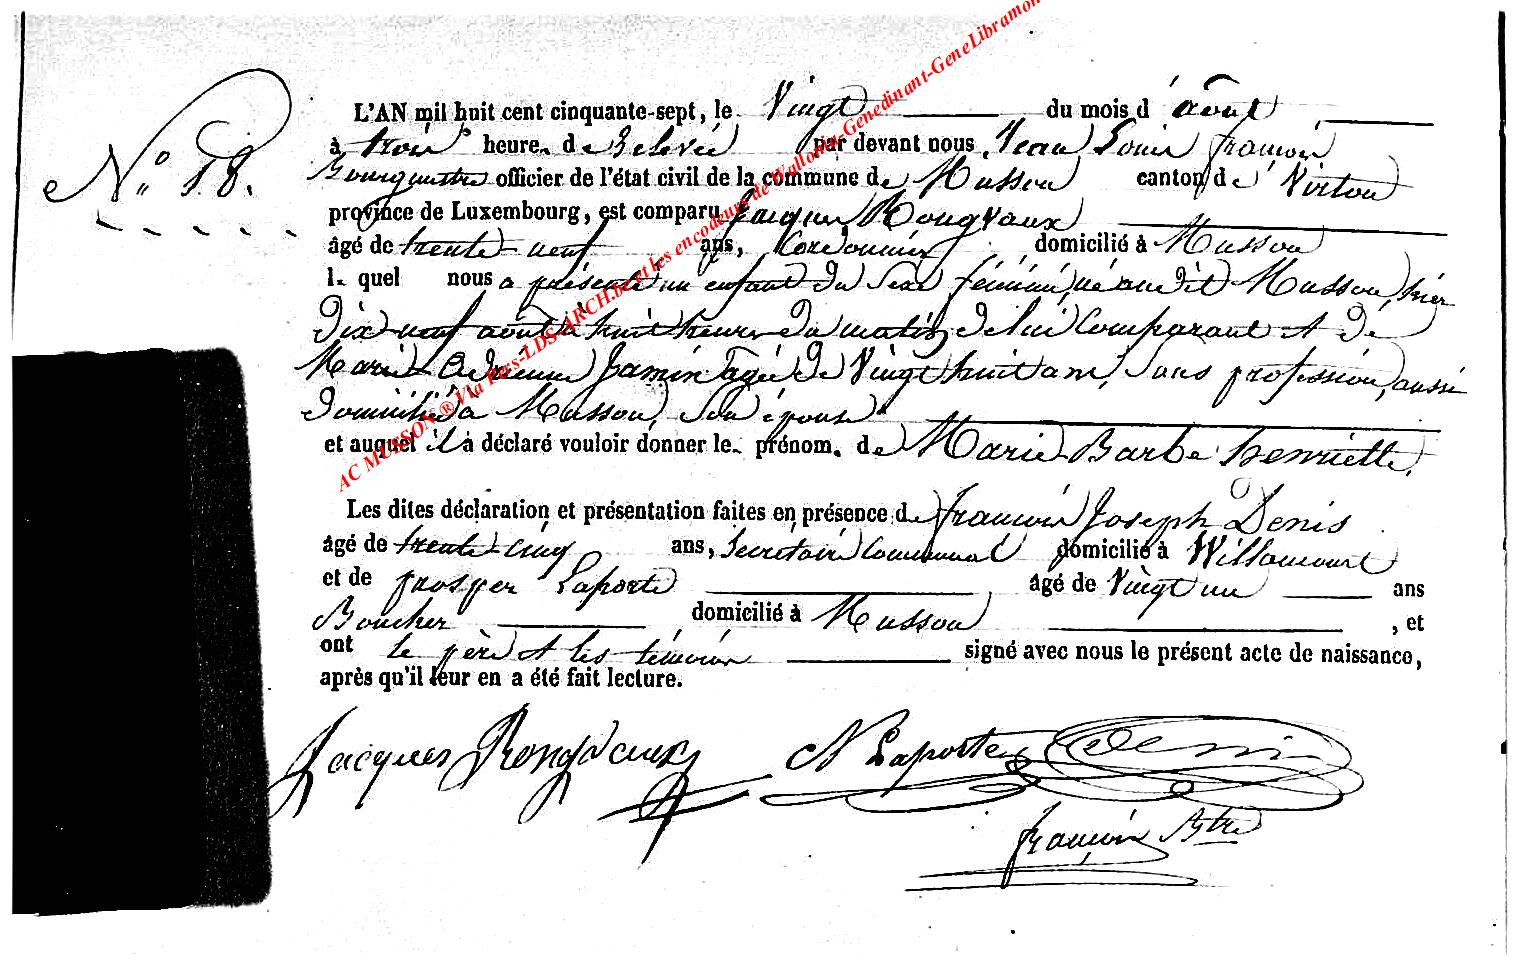 N° 18.
L'AN mil huit cent cinquante-sept, le Vingt du mois d'août
à trois heures de Relevée par devant nous Jean Louis François
Bourguestre officier de l'état civil de la commune de Musson canton de Virton
province de Luxembourg, est comparu Jacques Rongvaux
âgé de trente-neuf ans, Cordonnier domicilié à Musson
lequel nous a présenté un enfant du Sexe féminin, né audit Musson, hier
dix neuf août à huit heures du matin, de lui Comparant et de
Marie Jamin âgée de Vingt huit ans, sans profession, aussi
domicilié à Musson, son épouse
et auquel il a déclaré vouloir donner les prénoms de Marie Barbe henriette.
Les dites déclaration et présentation faites en présence de françois Joseph Denis
âgé de trente-cinq ans, Secrétaire Communal domicilié à Willancourt
et de prosper Laporte âgé de Vingt un ans
Boucher domicilié à Musson, et
ont le père et les témoins signé avec nous le présent acte de naissance,
après qu'il leur en a été fait lecture.
Jacques Rongvaux N Laporte Denis
françois Btre
AC MUSSON ® Via Pars-LDS-ARCH.be et les encodeurs de Wallonia-Genedinant-GeneLibramon